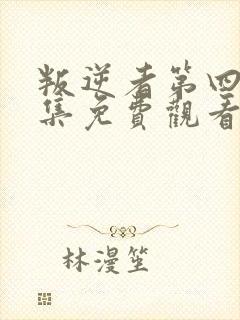 叛逆者第四
集免費觀看
林漫笙